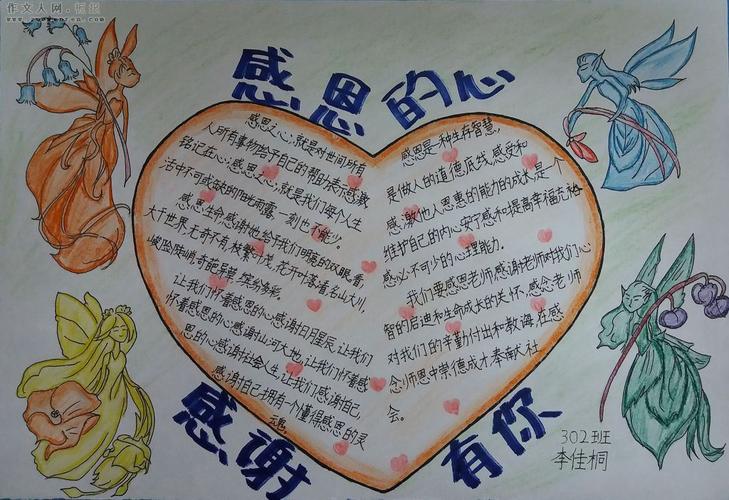 作文人网·
感恩的心
感恩之心,就是对世间所有
人所有事物给予自己的帮助表示感激,
铭记在心;感恩之心,就是我们每个人生
活中不可或缺的阳光雨露,一刻也不能少。
感恩生命感谢她给予我们明亮的双眼看
大千世界,无奇不有,枝繁叶茂,花开叶落;看名山大川,
峻险陡峭,奇葩异草,缤纷多彩。
让我们怀着感恩的心感谢日月星辰,让我们
怀着感恩的心感谢山河大地,让我们怀着感
恩的心感谢社会人生,让我们感谢自己,
感谢自己拥有个懂得感恩的灵
魂。
感恩是一种生存智慧,
是做人的道德底线,感受和
感激他人恩惠的能力的成长,是一个
维护自己的内心安宁感和提高幸福充裕
感必不可少的心理能力。
我们要感恩老师,感谢老师对我们心
智的启迪和生命成长的关怀,感念老师
对我们的辛勤付出和教诲,在感
念师恩中崇德成才奉献社
会。
感谢有你
302班
李佳桐